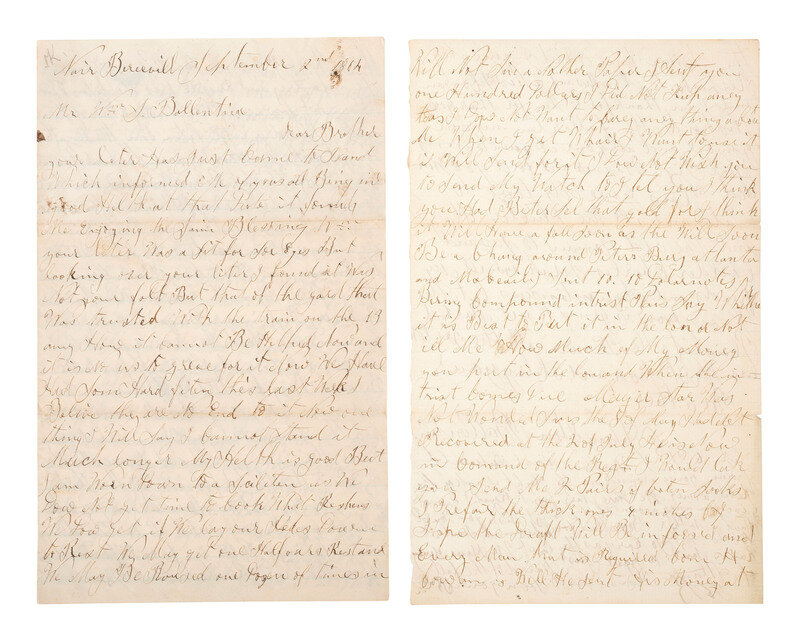 Nair Bereevill September 2nd 1864
Mr Wm J Ballentine
Dear Brother
your leter Has Just Come to Hand
Which informed Me of you all Being in
good Helth at that time it founds
Me Enjoying the Saim Blessing Wm
your leter Was a Sit for Soe Eyes But
looking over your leter I found it Was
Not your falt But that of the gard that
Was trusted With the train on the 13
any How it cannot Be Helped Now and
it is No us to greave for it Now We Have
Had Som Hard fiten this last Week I
Belive the are No End to it Now one
thing I Will Say I Cannot Stand it
Much longer My Helth is good But
I am Worn down to a Sciliten as We
Dow Not get time to Cook What Reshens
We Dow get if We lay our Selves Down
to Rest We May get one Half ours Rest and
We May Be Roused one Dozen of times in
Will Not Give a Nother Paper I Sent you
one Hundred Dollars I Did Not Keep aney
as I Dow Not Want to Carey aney thing about
Me When I get Whair I Want to use it
I Will Send for it I Dow Not Wish you
to Send My Watch to I tel you I think
you Had Beter Sel that gold for I think
it Will Have a fall Soon as the Will Soon
Be a Chang around Peters Burg atlanta
and Mobeail I Sent 10. 10 Dolar notes
Bering Compound intrist this Say Whither
it is Best to Put it in the lon or Not
tell Me How Much of My Money
you part in the loan and When the in-
trist Comes Due Mayjer Star Was
Not Wonded Sins the 5 of May Has Best
Recovered at the 2 of July He is Now
in Comand of the Regt. I Would like
you Send Me 2 Pairs of Coten Socks
I Prefair the thick ones
I Hope the Draft Will Be inforsed and
Every Man that is Required
is Will He Sent His Money at